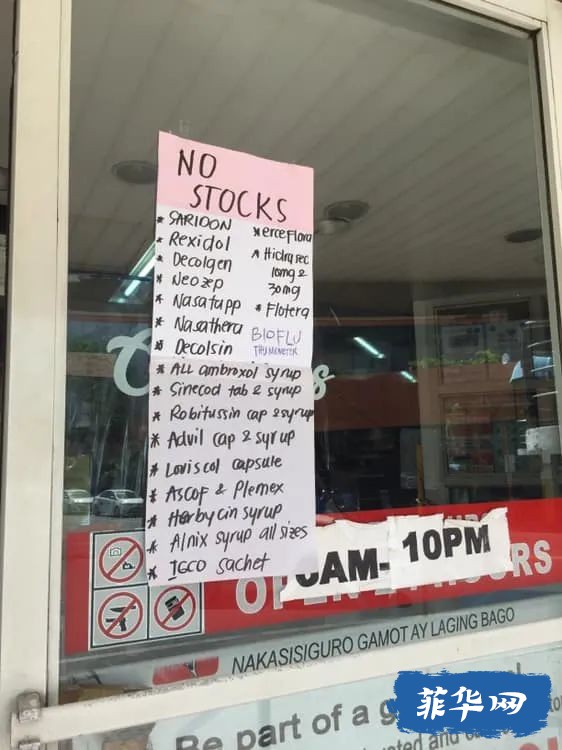 NO
STOCKS
* SARIDON
* Rexidol
* Decolgen
* Neozep
* Nasatapp
* Nasathera
* Decolsin
* erceflora
* Hidrasec
10mg &
30mg
* Flotera
BIOFLU
THERMOMETER
* ALL ambroxol syrup
* Sinecod tab & syrup
* Robitussin cap & syrup
* Advil cap & syrup
* Loviscol capsule
* Ascof & Plemex
* Herbycin syrup
* Alnix syrup all sizes
* IGCO sachet
6AM- 10PM
OPEN 24 HOURS
NAKASISIGURO GAMOT AY LAGING BAGO
Be part of a
菲华网